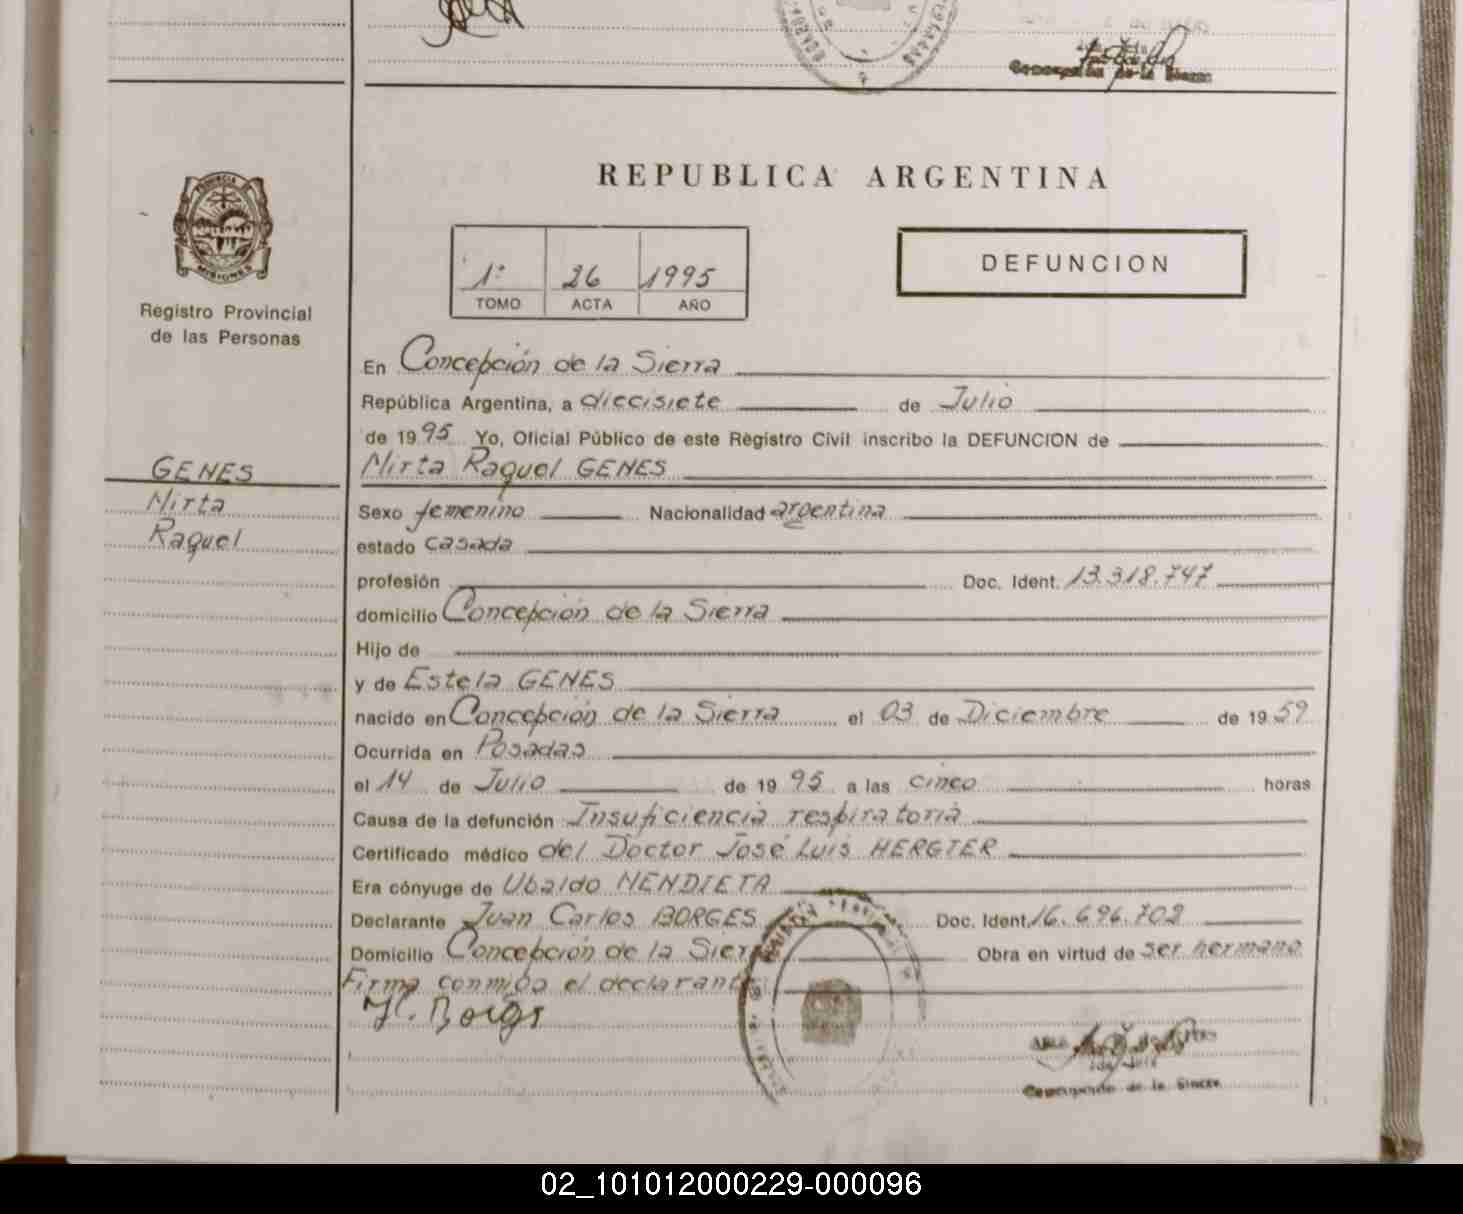 Concepción de la Sierra
REPUBLICA ARGENTINA
PROVINCIA DE
MISIONES
Registro Provincial
de las Personas
1º 26 1995
TOMO ACTA AÑO
DEFUNCION
En Concepción de la Sierra
República Argentina, a diecisiete de Julio
de 1995 Yo, Oficial Público de este Registro Civil inscribo la DEFUNCION de
GENES
Mirta Raquel GENES
Mirta
Raquel
Sexo femenino Nacionalidad argentina
estado casada
profesión Doc. Ident. 13.318.747
domicilio Concepción de la Sierra
Hijo de
y de Estela GENES
nacido en Concepción de la Sierra el 03 de Diciembre de 1959
Ocurrida en Posadas
el 14 de Julio de 1995 a las cinco horas
Causa de la defunción Insuficiencia respiratoria
Certificado médico del Doctor José Luis HERGTER
Era cónyuge de Ubaldo MENDIETA
Declarante Juan Carlos BORGES Doc. Ident. 16.696.702
Domicilio Concepción de la Sierra Obra en virtud de ser hermano
Firma conmigo el declarante
Concepción de la Sierra
02_101012000229-000096